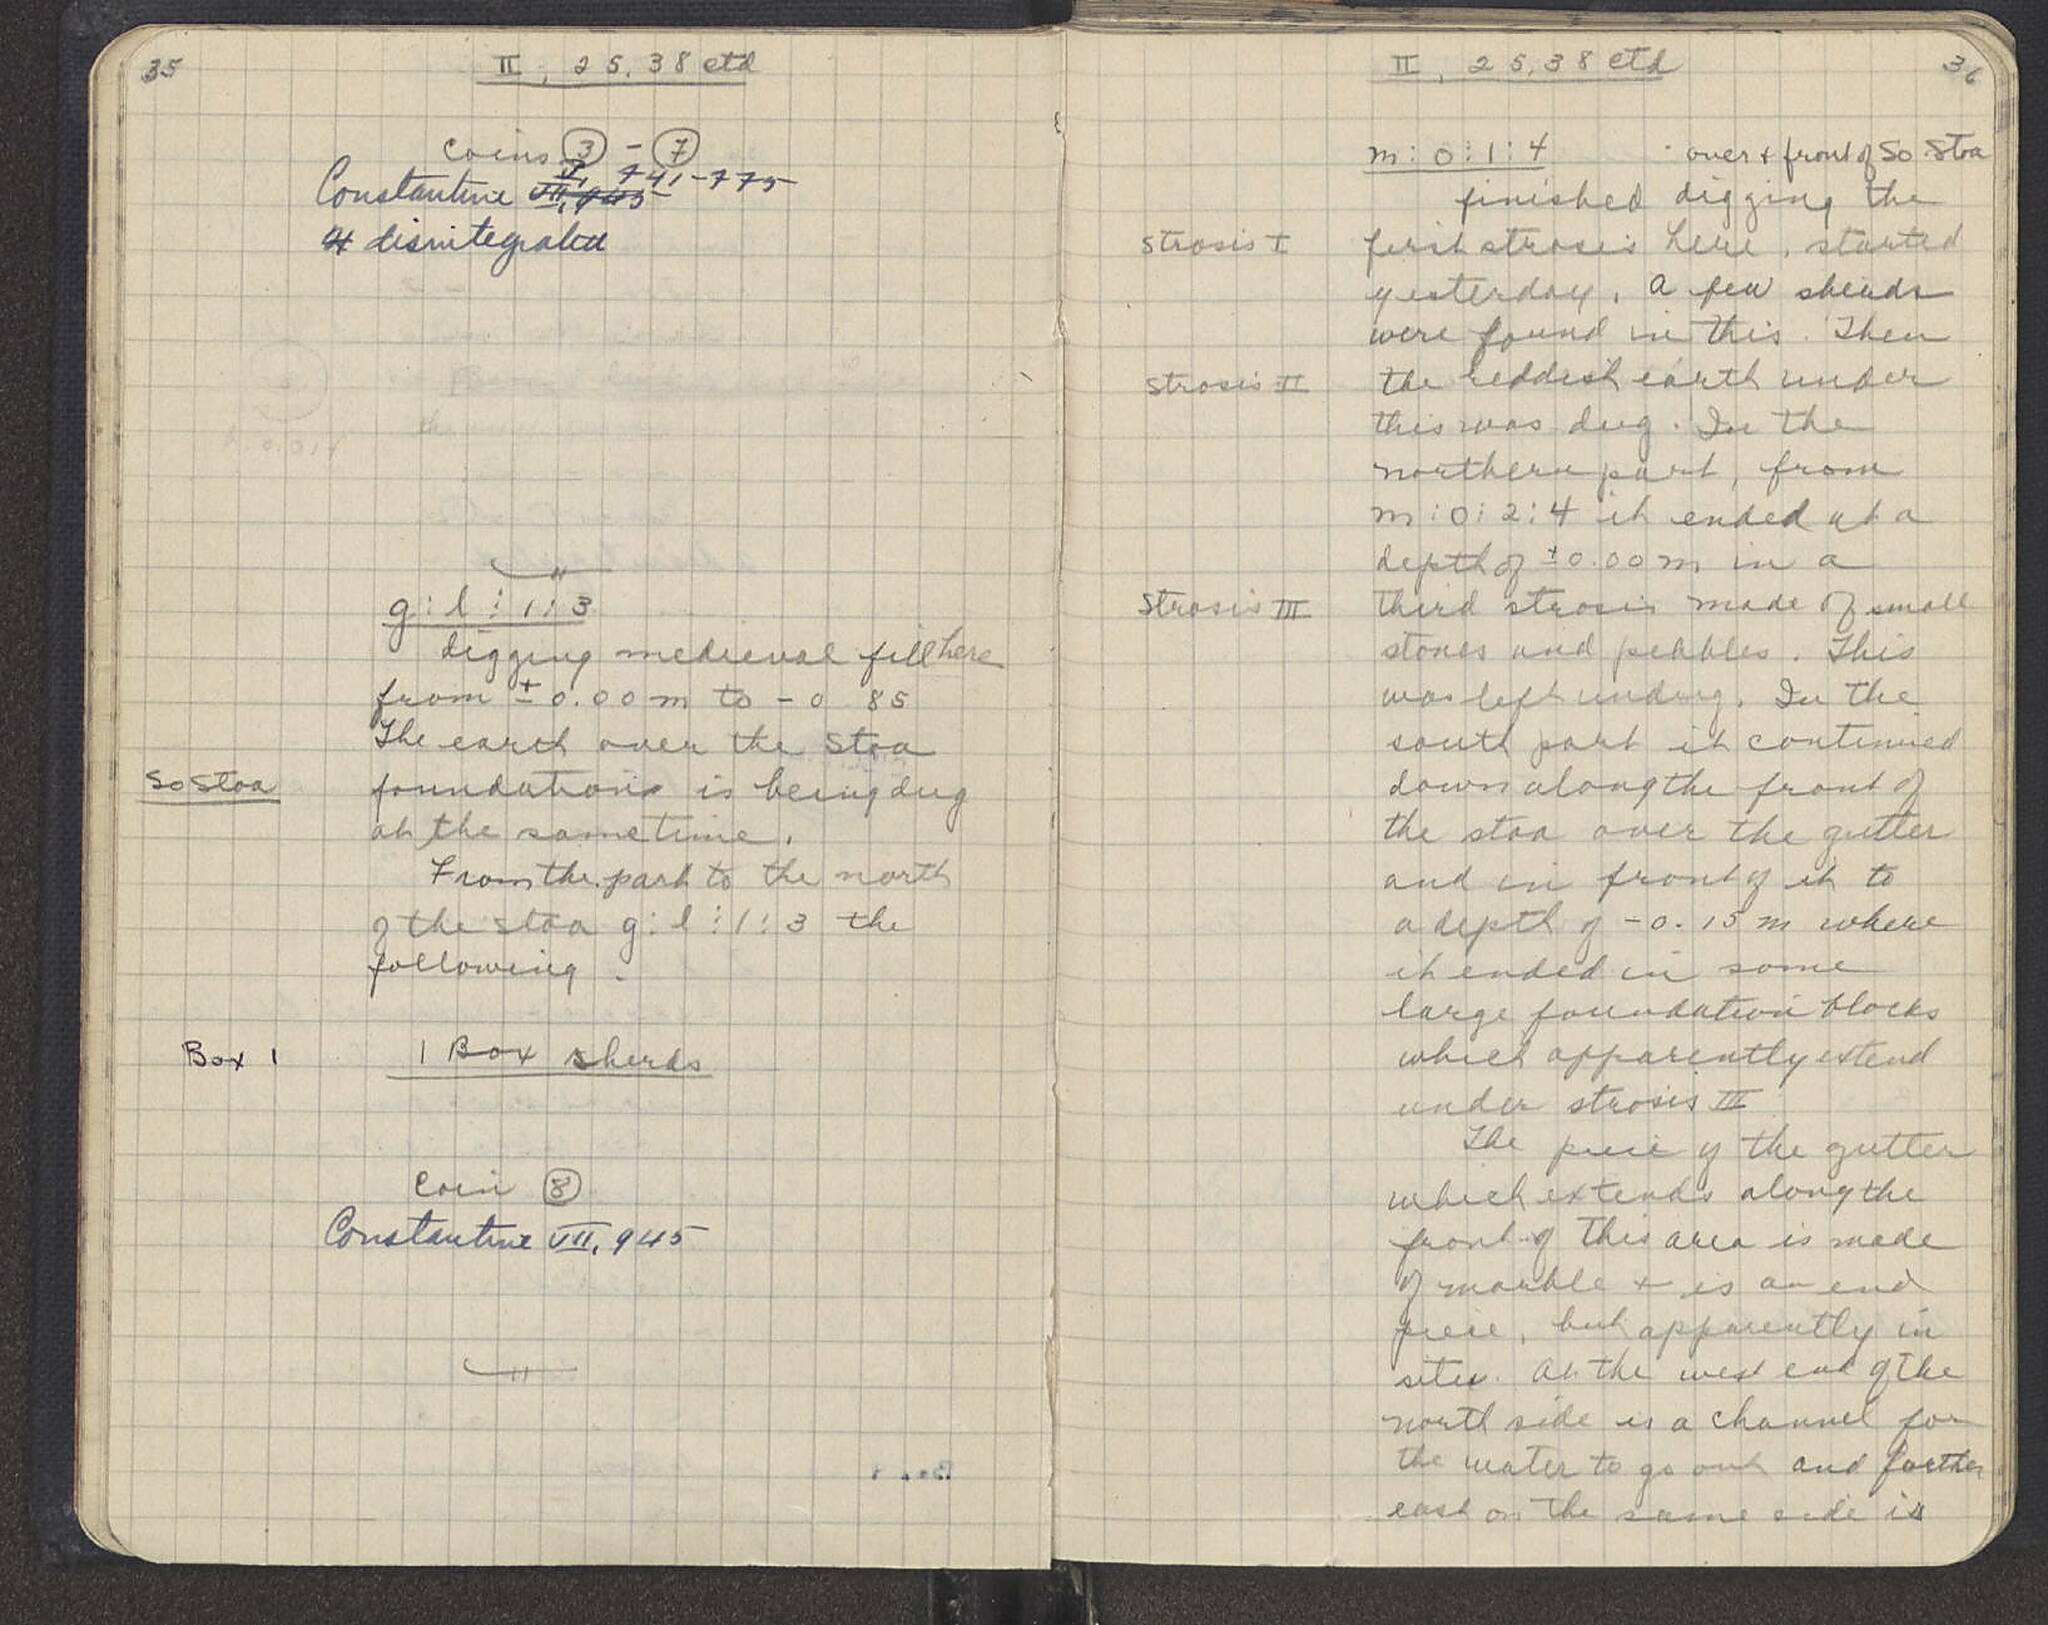 35
II, 25.38 ctd
Coins 3 - 7
V, 741-775
Constantine VII, 945
4 disintegrated
g:l:1:3
digging medieval fill here
from ±0.00 m to -0 85
The earth over the Stoa
So Stoa
foundations is being dug
at the same time.
From the part to the north
of the stoa g:l:1:3 the
following.
Box 1
1 Box sherds
Coin 8
Constantine VII, 945
II, 25.38 ctd
36
m:0:1:4 over + front of So Stoa
finished digging the
Strosis I
first strosis here, started
yesterday. A few sherds
were found in this. Then
Strosis II
the reddish earth under
this was dug. In the
northern part, from
m:0:2:4 it ended at a
depth of ±0.00 m in a
Strosis III
third strosis made of small
stones and pebbles. This
was left undug. In the
south part it continued
down along the front of
the stoa over the gutter
and in front of it to
a depth of -0.15 m where
it ended in some
large foundation blocks
which apparently extend
under strosis III
The piece of the gutter
which extends along the
front of this area is made
of marble + is an end
piece, but apparently in
situ. At the west end of the
north side is a channel for
the water to go out and further
east on the same side is